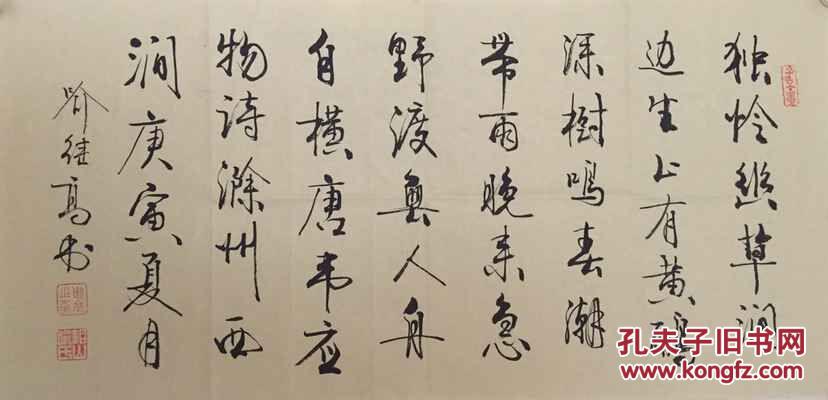 独怜幽草涧
边生上有黄鹂
深树鸣春潮
带雨晚来急
野渡无人舟
自横唐韦应
物诗滁州西
涧庚寅夏月
喻继高书
孔夫子旧书网
www.kongfz.com